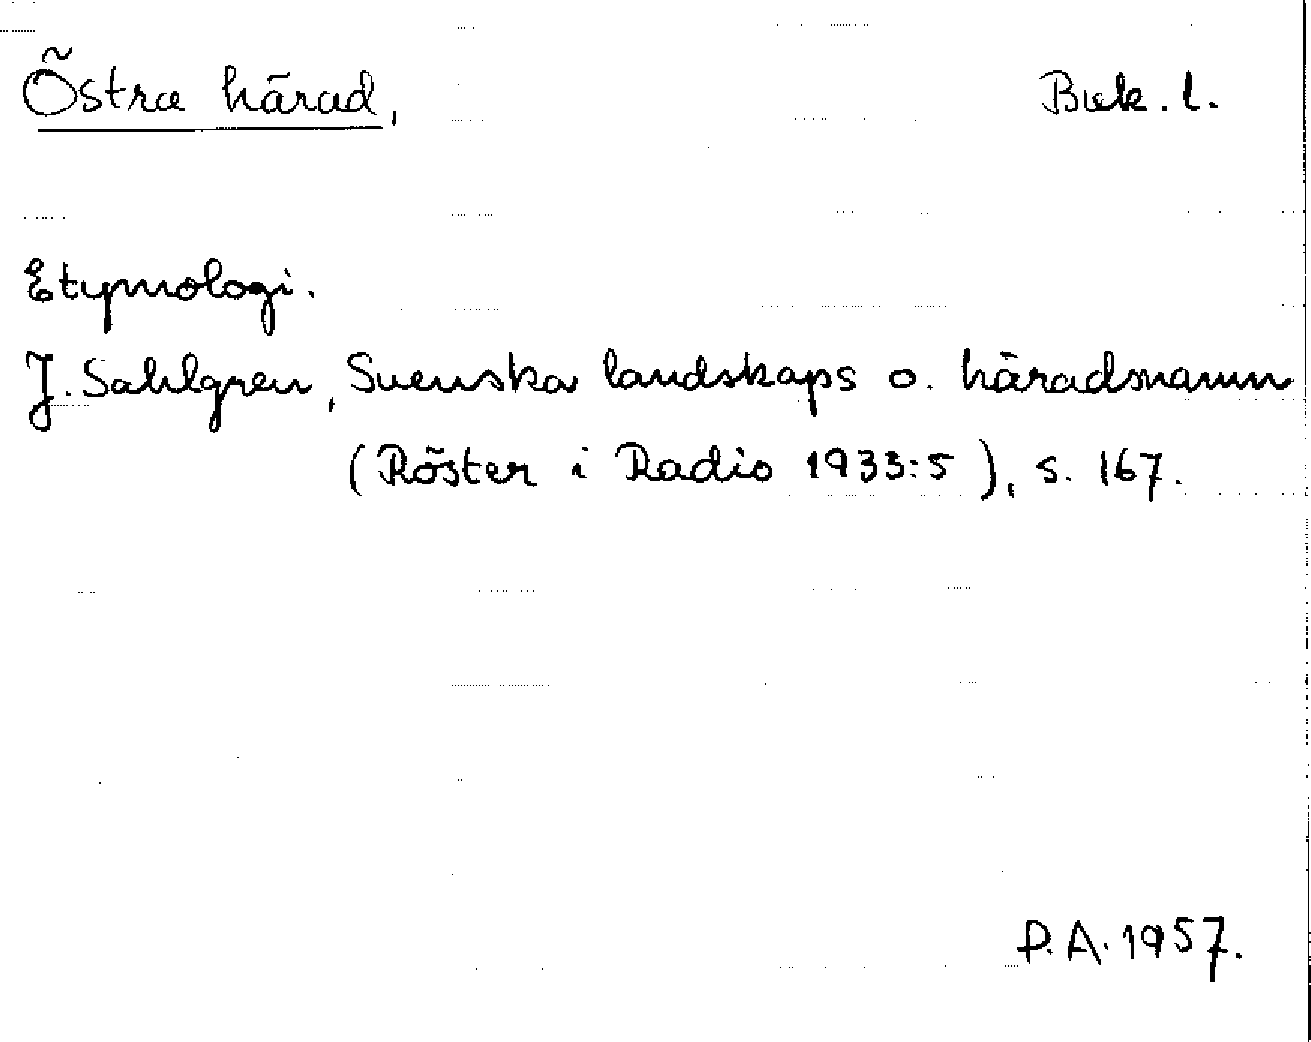 Östra härad, Blek. l.
Etymologi.
J. Sahlgren, Svenska landskaps o. häradsnamn
(Röster i Radio 1933:5), s. 167.
P.A. 1957.